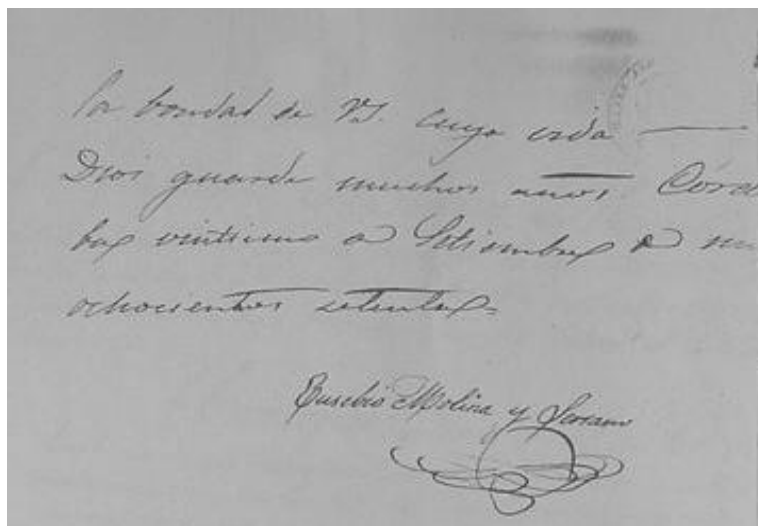 la bondad de V.S. cuya vida
Dios guarde muchos años. Córdo
ba vinticinco de Setiembre de mil
ochocientos setenta=
Eusebio Molina y Serrano